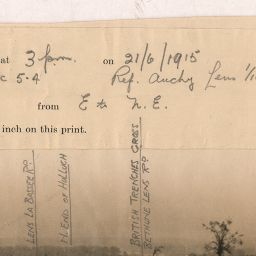 at 3 p.m. on 21/6/1915
c 5.4 Ref. Lens 1/1
from E to N.E.
inch on this print.
LENS LA BASSEE RD
N. END OF HULLUCH
BRITISH TRENCHES CROSS
BETHUNE LENS RD